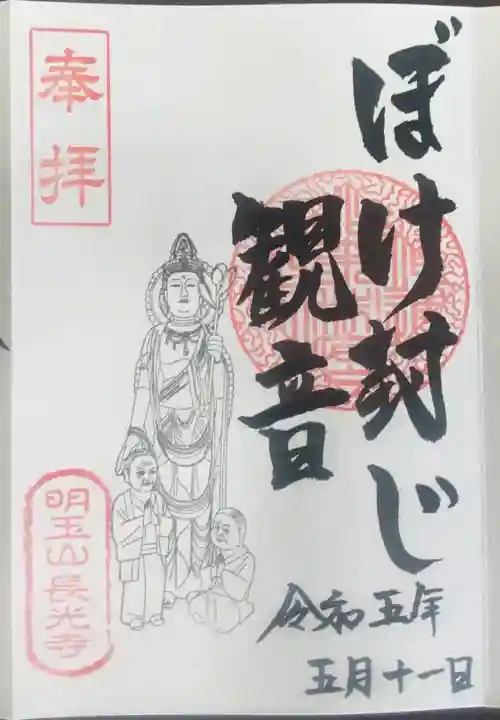 奉拝
ぼけ封じ
観音
令和五年
五月十一日
明玉山長光寺